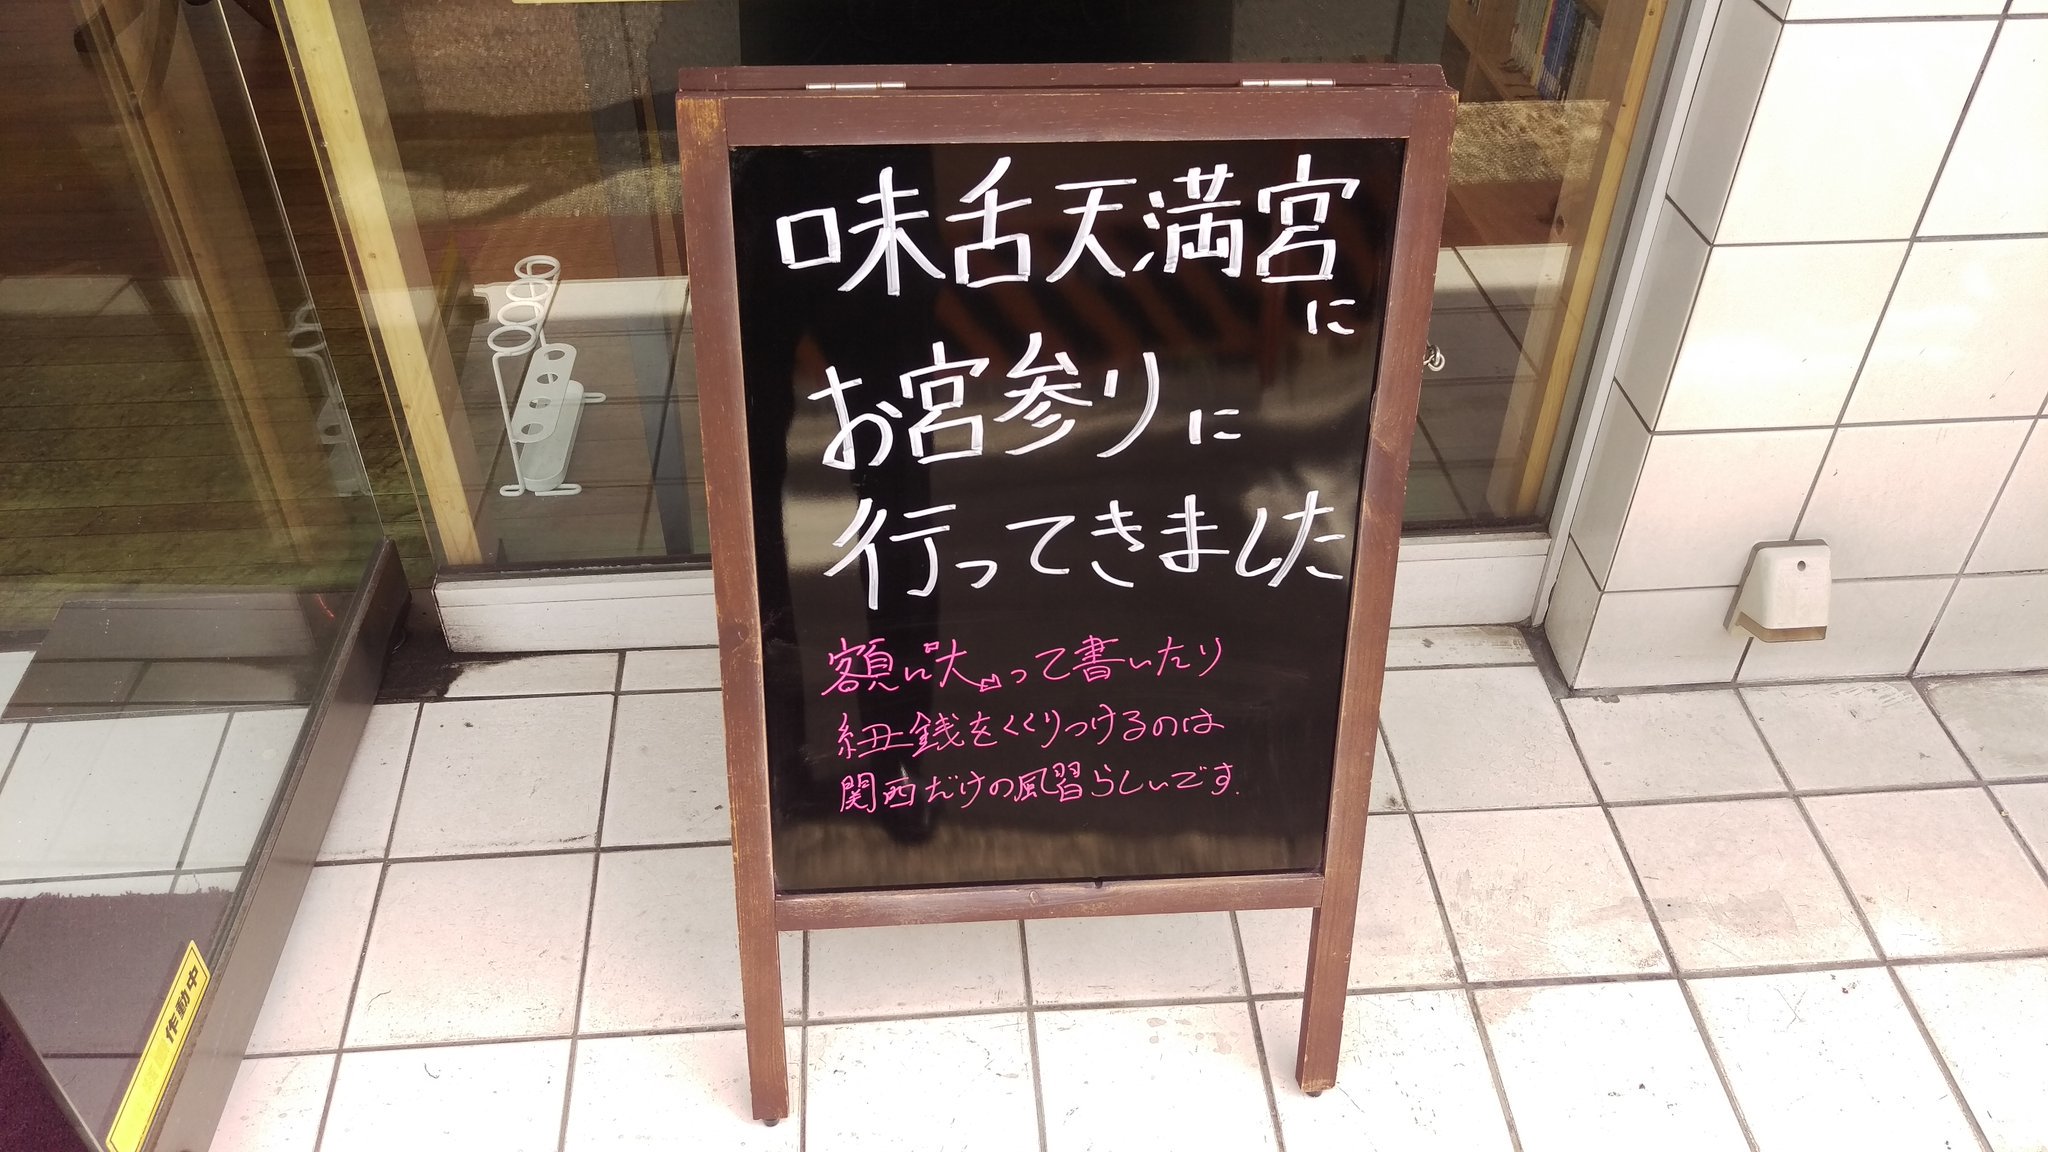 味舌天満宮
に
お宮参りに
行ってきました
額に「大」って書いたり
紐銭をくくりつけるのは
関西だけの風習らしいです.
作動中